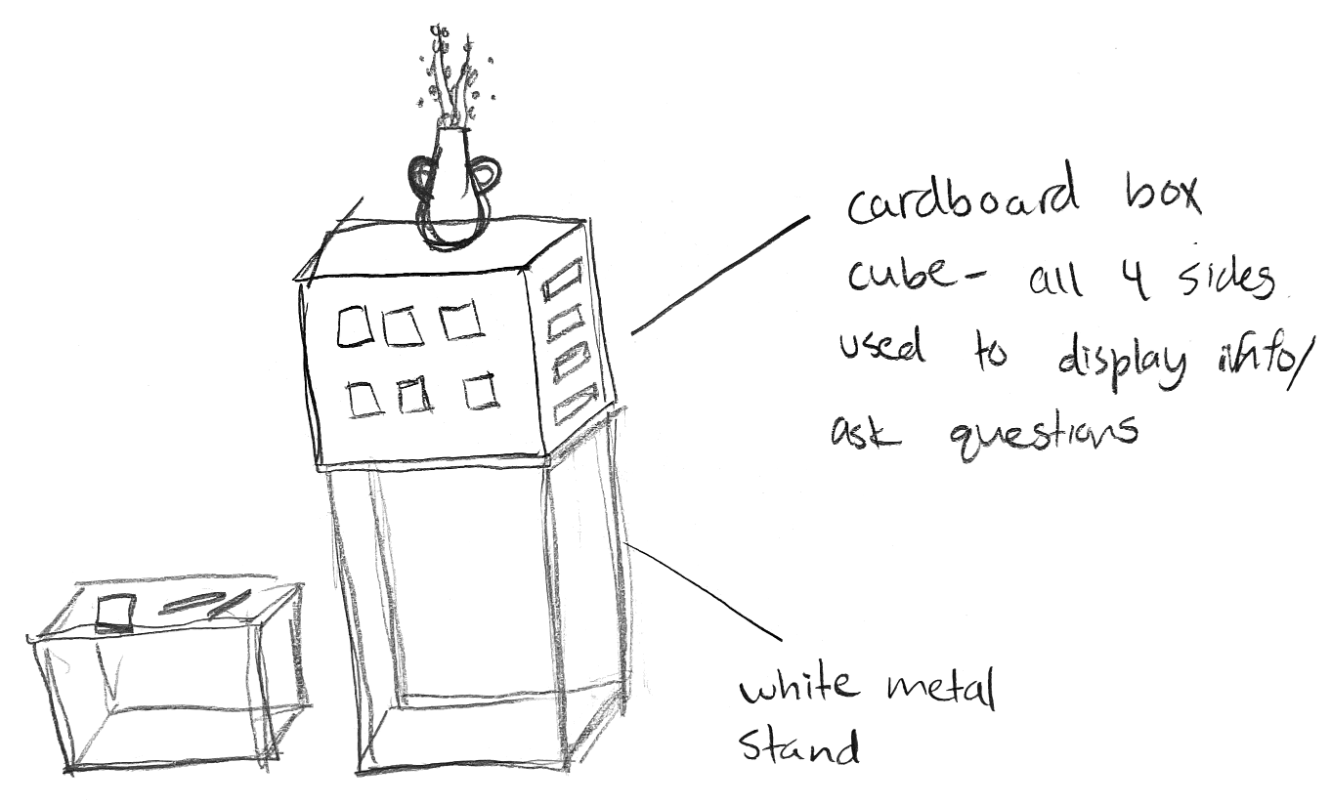 cardboard box
cube- all 4 sides
used to display info/
ask questions
white metal
stand